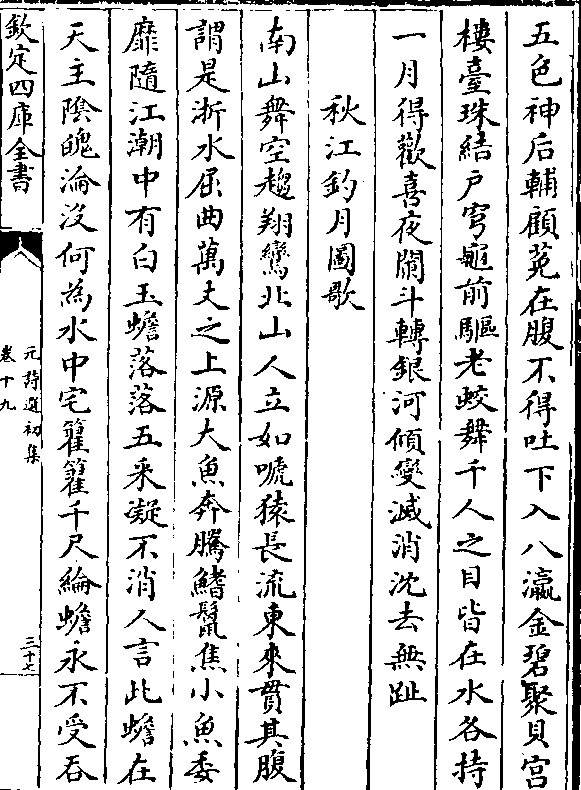 五色神后輔顧菟在腹不得吐下入八瀛金碧聚貝宫
樓臺珠結户穹龜前驅老蛟舞千人之目皆在水各持
一月得歡喜夜闌斗轉銀河傾變滅消沈去無趾
秋江釣月圖歌
南山舞空趨翔鸞北山人立如嗁猿長流東來貫其腹
謂是浙水屈曲萬丈之上源大魚奔騰鰭鬛焦小魚委
靡隨江潮中有白玉蟾落落五采凝不消人言此蟾在
天主陰魄淪没何為水中宅籊籊千尺綸蟾永不受吞
欽定四庫全書
元詩選初集
卷十九
三十七